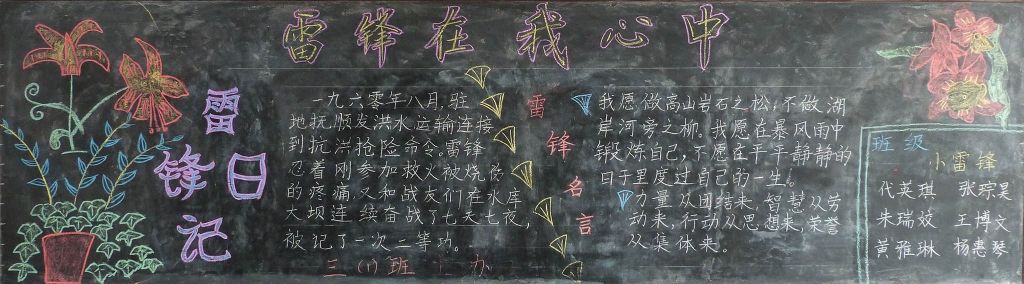 雷锋在我心中
雷锋日记
一九六零年八月,驻
地抚顺发洪水,运输连接
到抗洪抢险命令。雷锋
忍着刚参加救火被烧伤
的疼痛,又和战友们在水库
大坝连续奋战了七天七夜,
被记了一次二等功。
三(1)班 办
雷锋名言
我愿做高山岩石之松,不做湖
岸河旁之柳。我愿在暴风雨中
锻炼自己,不愿在平平静静的
日子里度过自己的一生。
力量从团结来,智慧从劳
动来,行动从思想来,荣誉
从集体来。
班级
小雷锋
代英琪 张琮昊
朱瑞姣 王博文
黄雅琳 杨惠琴